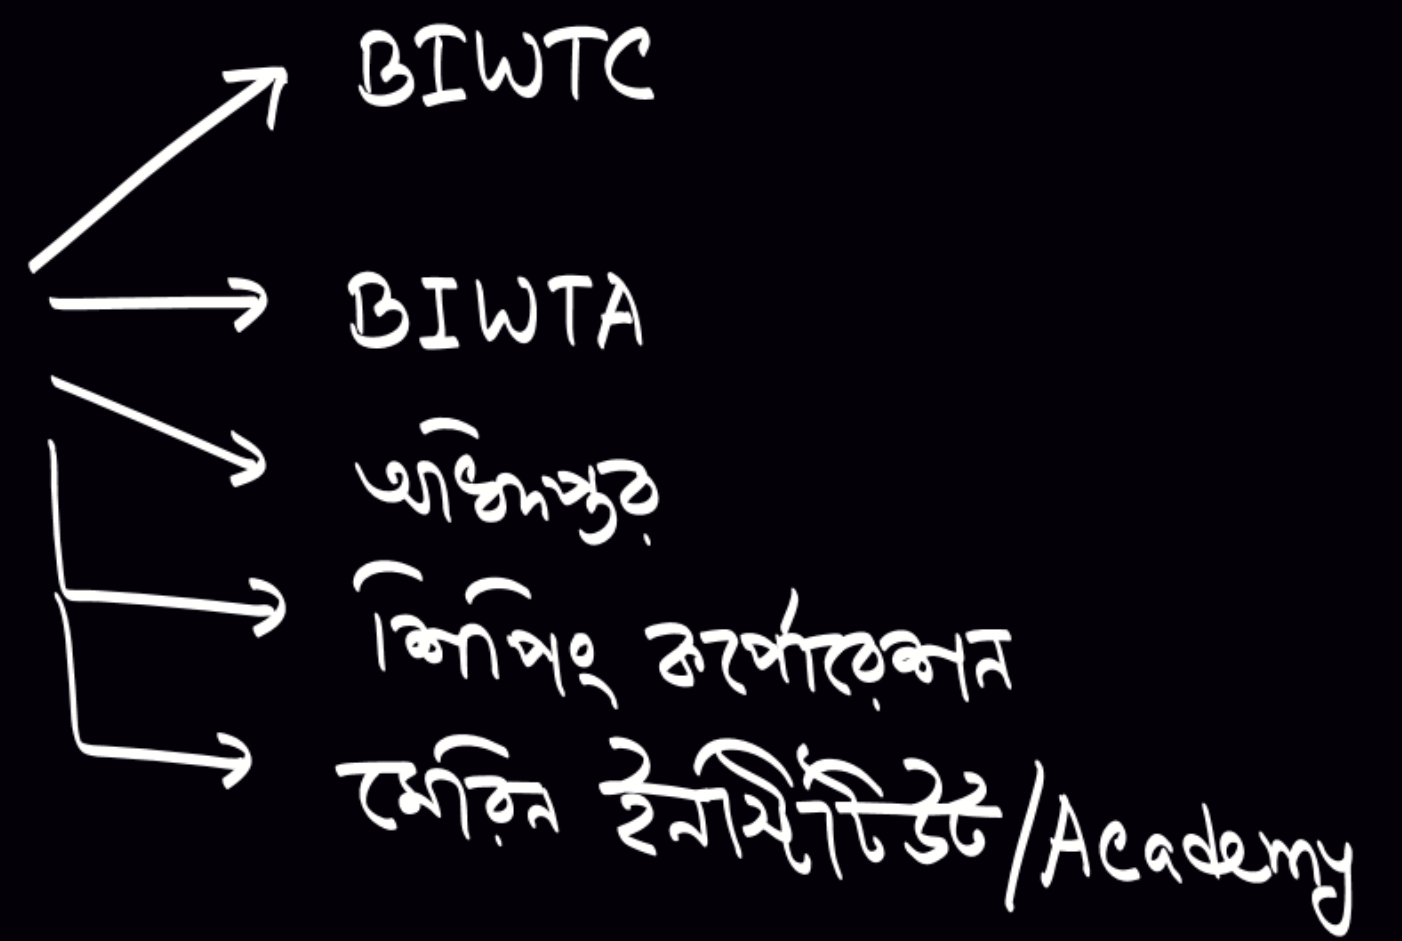 BIWTC
BIWTA
অধিদপ্তর
শিপিং কর্পোরেশন
মেরিন ইনস্টিটিউট/Academy